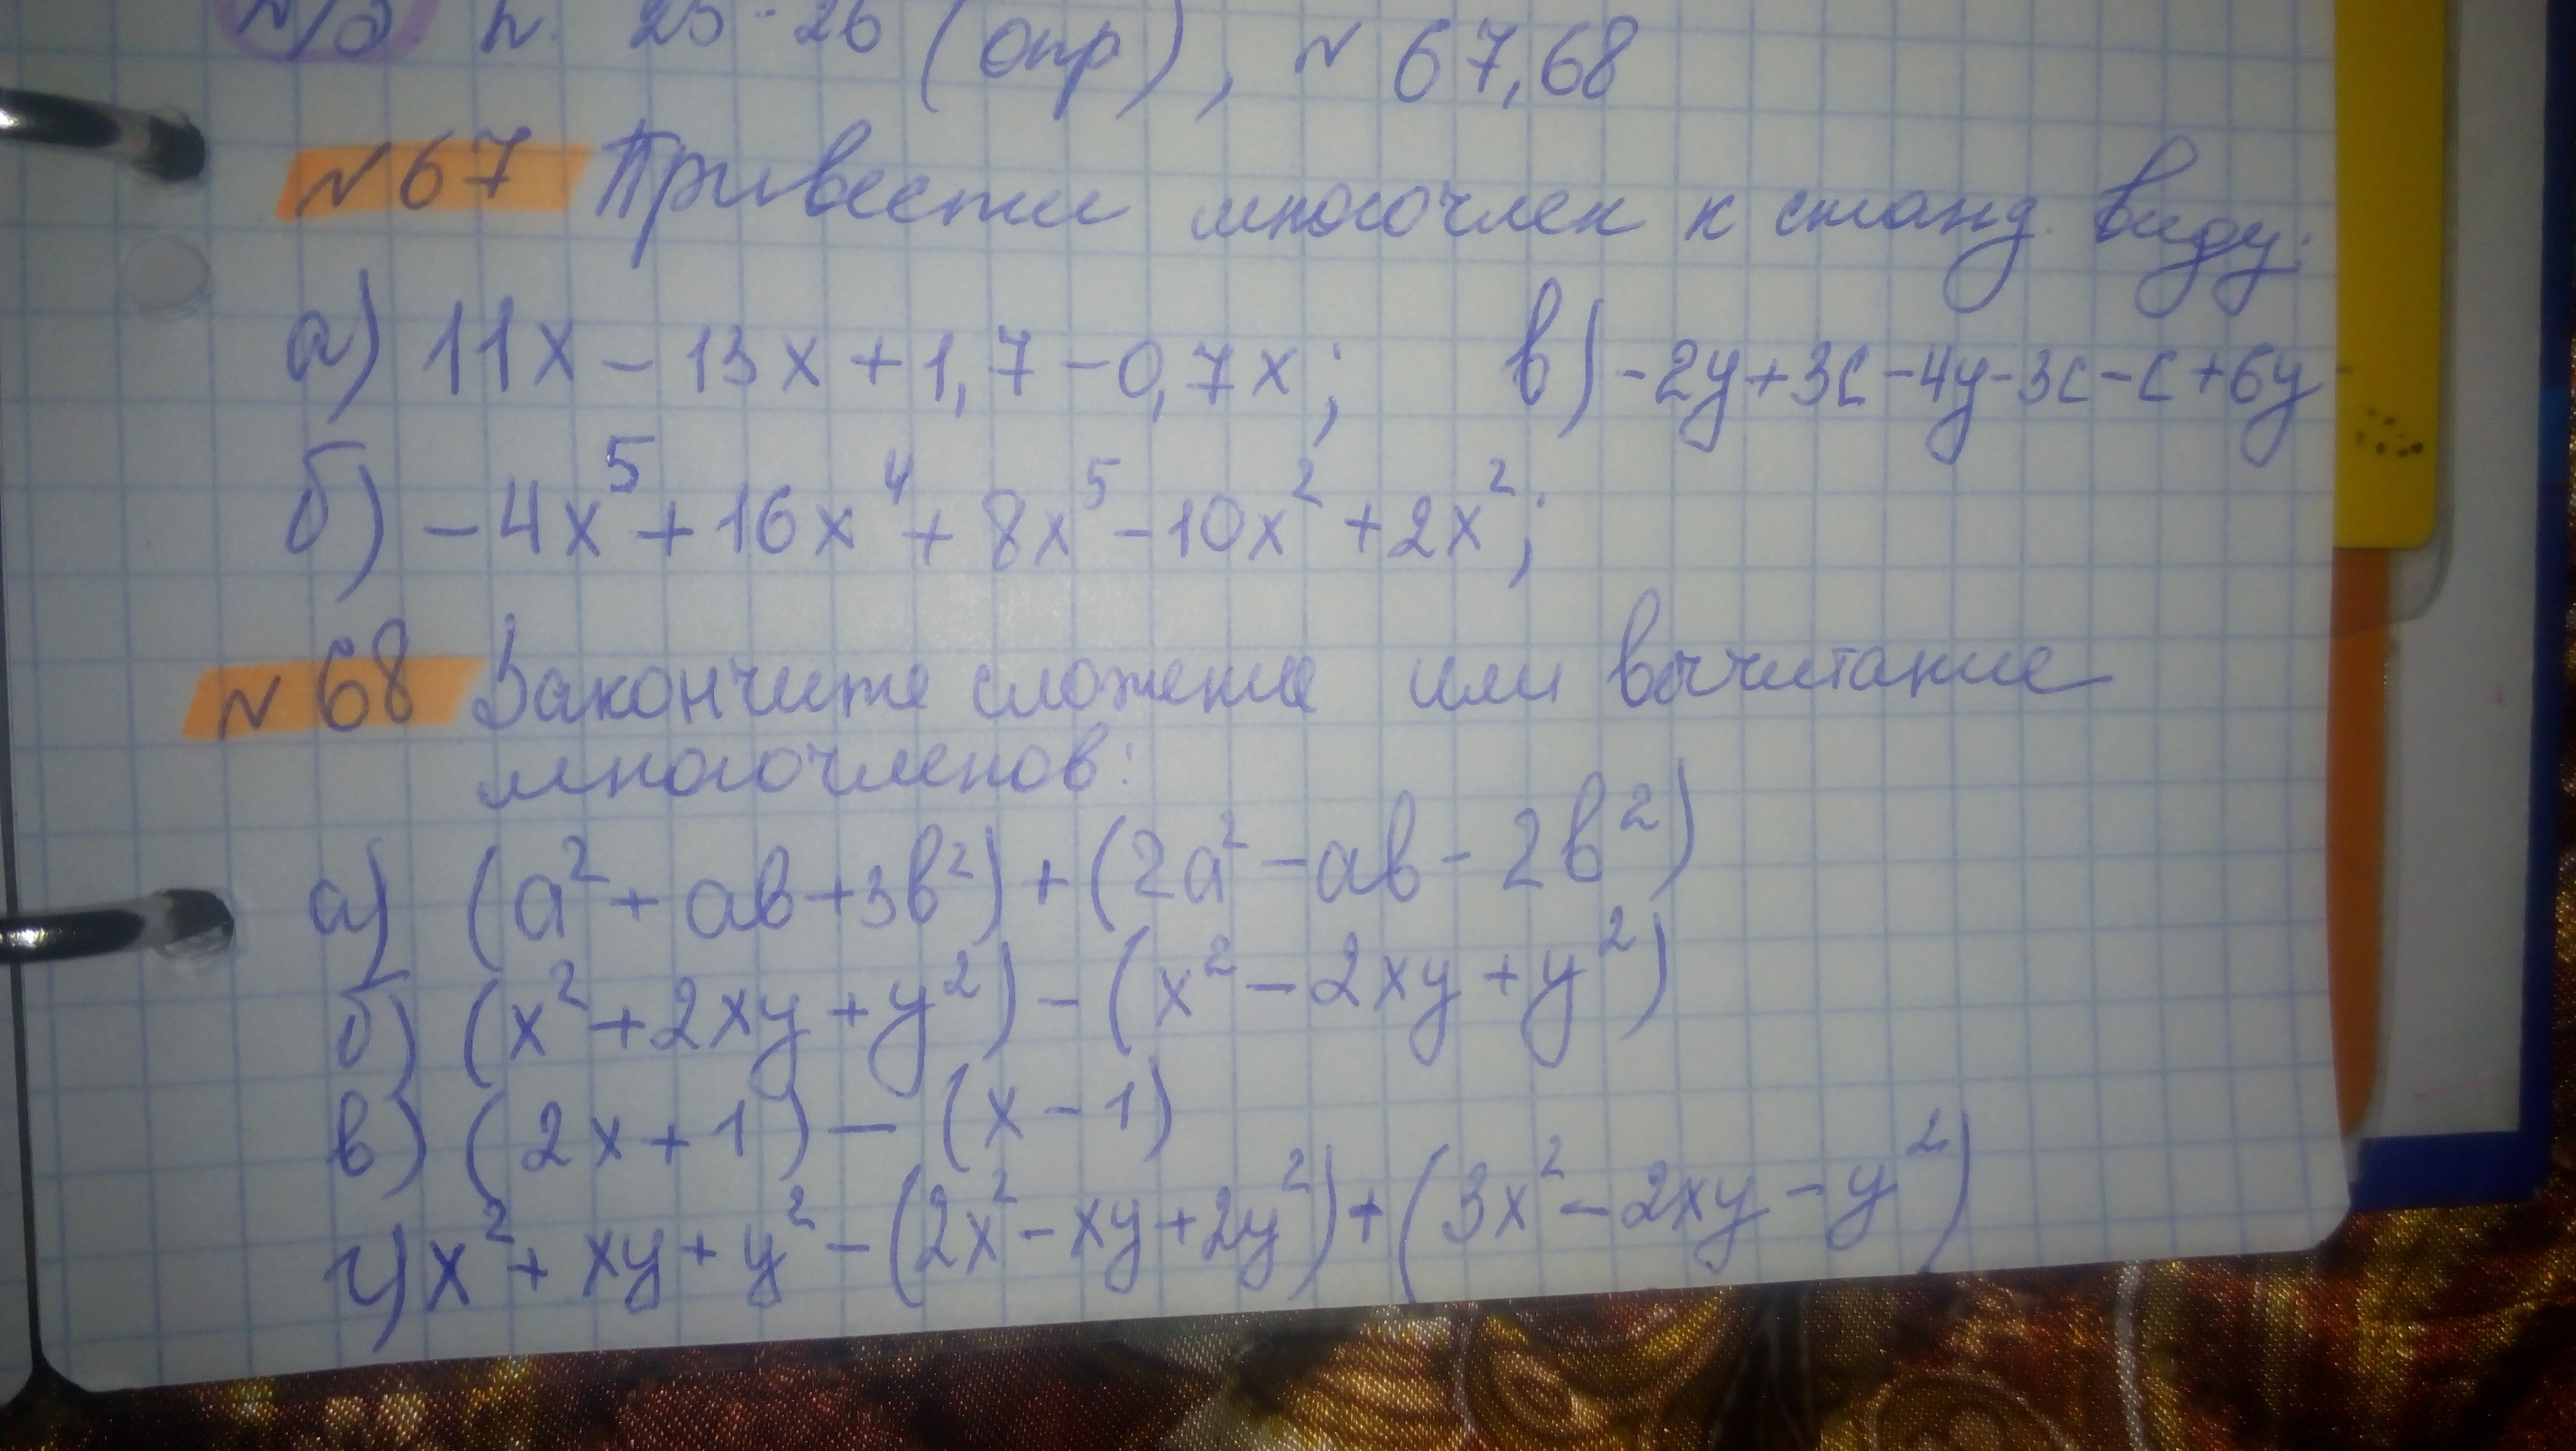 п. 25-26 (опр), № 67,68
№67 Привести многочлен к станд. виду:
а) 11x - 13x + 1,7 - 0,7x; в) -2y+3c-4y-3c-c+6y
б) -4x⁵ + 16x⁴ + 8x⁵ - 10x² + 2x²;
№68 Закончите сложение или вычитание
многочленов:
а) (a² + ab + 3b²) + (2a² - ab - 2b²)
б) (x² + 2xy + y²) - (x² - 2xy + y²)
в) (2x + 1) - (x - 1)
г) x² + xy + y² - (2x² - xy + 2y²) + (3x² - 2xy - y²)